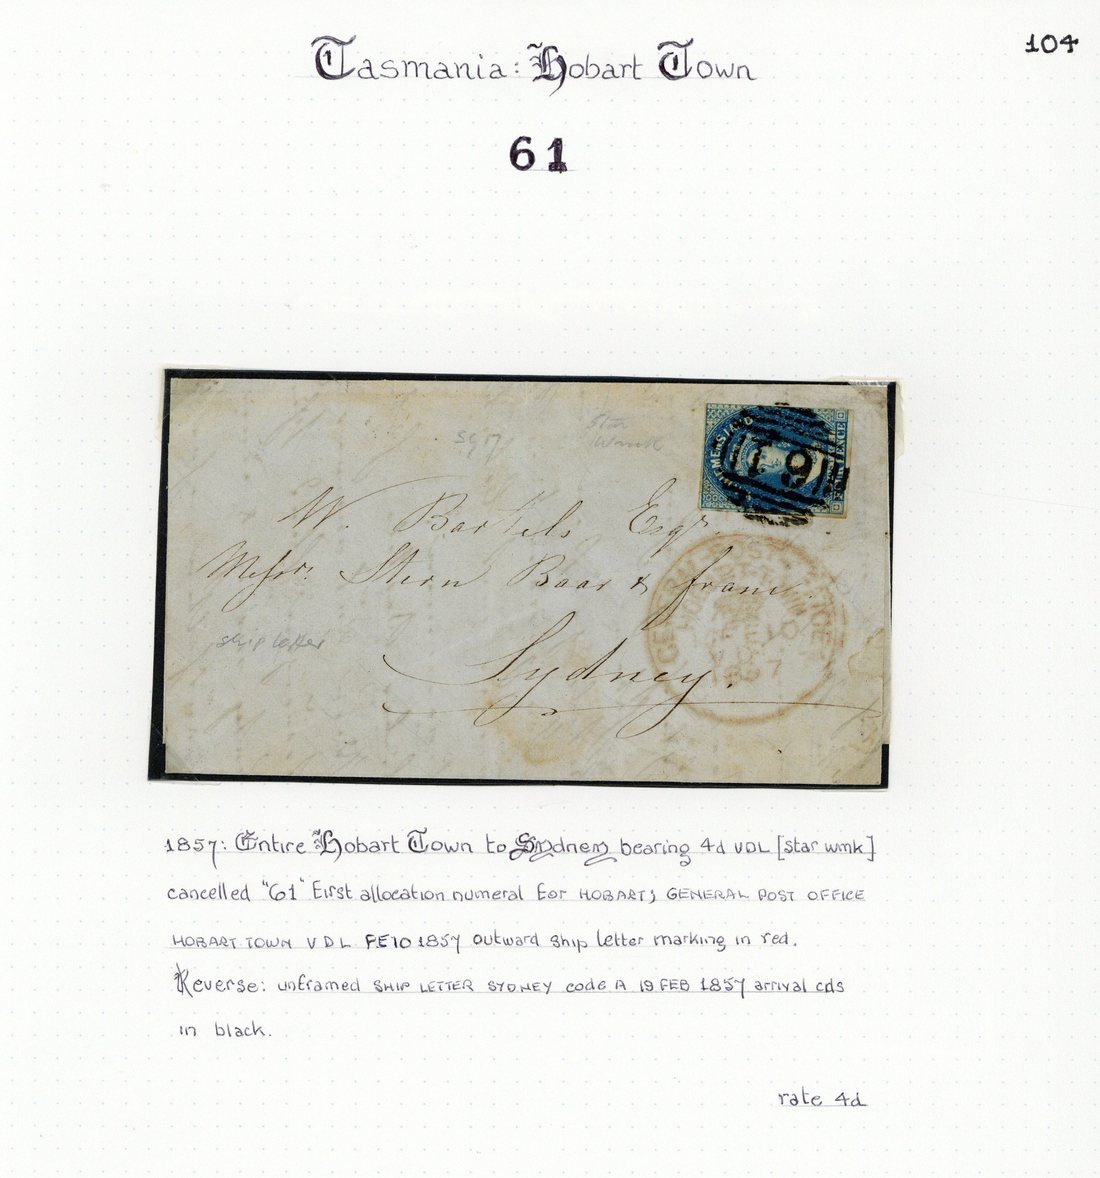 104
Tasmania: Hobart Town
61
SG 17
Star
Wmk
DIEMENS LAND
FOUR PENCE
61
W. Bartels Esqr.
Messrs. Stern Baar & Franc.
Sydney.
ship letter
GENERAL POST OFFICE
HOBART-TOWN
10
1857
1857: Entire Hobart Town to Sydney bearing 4d VDL [star wmk]
cancelled "61" First allocation numeral for HOBART; GENERAL POST OFFICE
HOBART TOWN V D L FE 10 1857 outward ship letter marking in red.
Reverse: unframed SHIP LETTER SYDNEY code A 19 FEB 1857 arrival cds
in black.
rate 4d